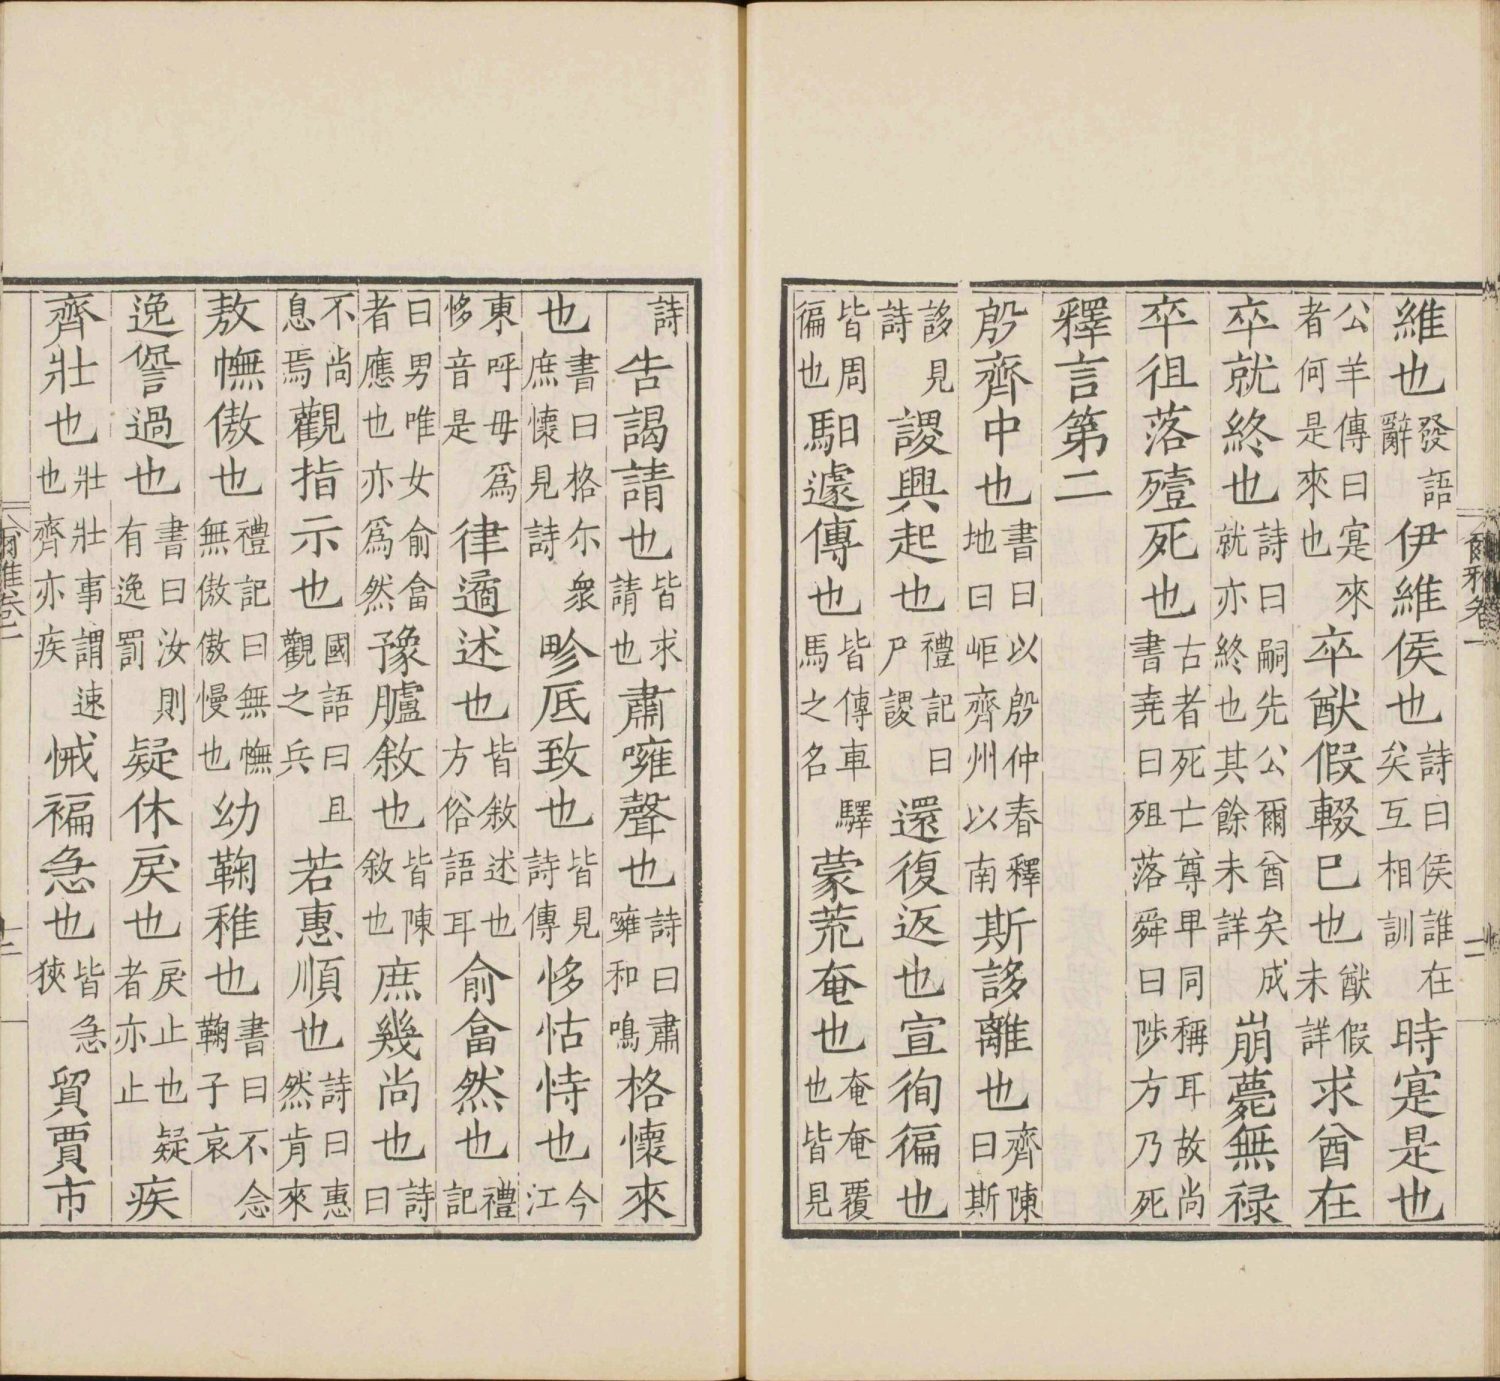 維也發語辭伊維侯也詩曰侯誰在矣互相訓時寔是也
公羊傳曰寔來者何是來也卒猷假輟已也猷假未詳求酋在
卒就終也詩曰嗣先公爾酋矣成就亦終也其餘未詳崩薨無禄
卒徂落殪死也古者死亡尊卑同稱耳故尚書堯曰殂落舜曰陟方乃死
釋言第二
殷齊中也書曰以殷仲春釋地曰岠齊州以南斯誃離也齊陳曰斯
誃見詩謖興起也禮記曰尸謖還復返也宣徇徧也
皆周徧也馹遽傳也皆傳車驛馬之名蒙荒奄也奄奄覆也皆見
詩告謁請也皆求請也肅噰聲也詩曰肅噰和鳴格懷來
也書曰格尓衆庶懷見詩畛厎致也皆見詩傳恀怙恃也今江
東呼母爲恀音是律遹述也皆敘述也方俗語耳俞畣然也禮記
曰男唯女俞畣者應也亦爲然豫臚敘也皆陳敘也庶幾尚也詩曰
不尚息焉觀指示也國語曰且觀之兵若惠順也詩曰惠然肯來
敖憮傲也禮記曰無憮無傲傲慢也幼鞠稚也書曰不念鞠子哀
逸諐過也書曰汝則有逸罰疑休戾也戾止也疑者亦止疾
齊壯也壯壯事謂速也齊亦疾悈褊急也皆急狹貿賈市
爾雅卷上
二